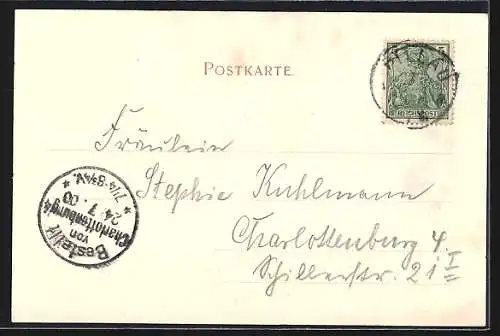 POSTKARTE
5
PILLAU
REICHSPOST
Fräulein
Stephie Kuhlmann
Charlottenburg 4.
Schillerstr. 21 I
Bestellt
von
Charlottenburg 4
24.7.00
7¼-8¼V.